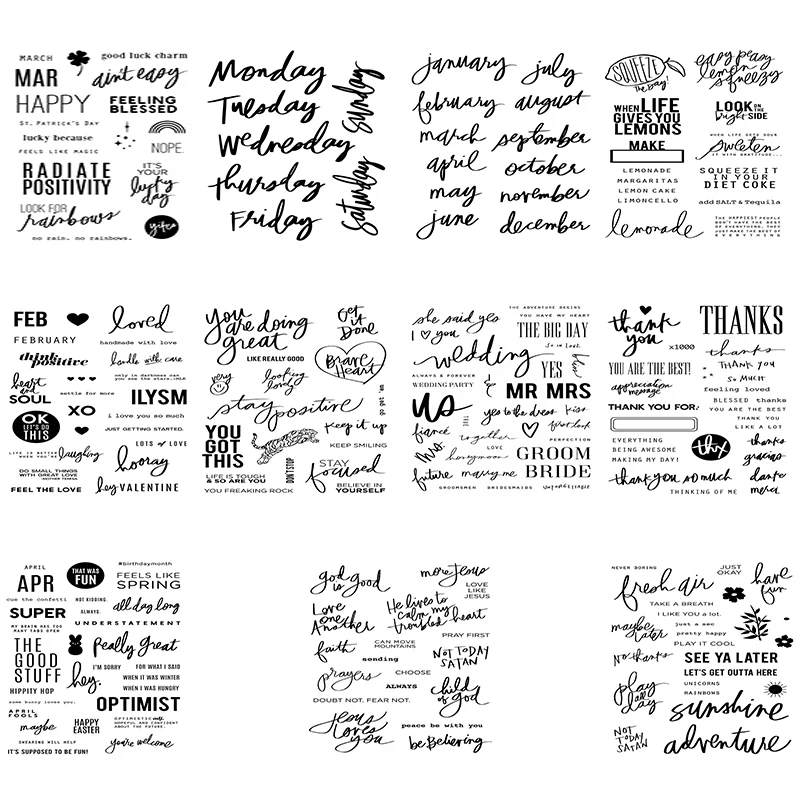 MARCH
good luck charm
MAR
ain't easy
HAPPY
FEELING
BLESSED
ST. PATRICK'S DAY
lucky because
FEELS LIKE MAGIC
NOPE.
RADIATE
POSITIVITY
IT'S
YOUR
lucky
day
LOOK FOR
rainbows
yikes
no rain. no rainbows.
Monday
Tuesday
Wednesday
Thursday
Friday
Saturday
Sunday
january
july
february
august
march
september
april
october
may
november
june
december
SQUEEZE
the day!
easy peasy
lemon
squeezy
WHEN LIFE
GIVES YOU
LEMONS
LOOK ON THE
bright SIDE
MAKE
WHEN LIFE GETS SOUR
sweeten
IT WITH GRATITUDE...
LEMONADE
MARGARITAS
LEMON CAKE
LIMONCELLO
SQUEEZE IT
IN YOUR
DIET COKE
add SALT & Tequila
lemonade
THE HAPPIEST PEOPLE
DON'T HAVE THE BEST
OF EVERYTHING, THEY
JUST MAKE THE BEST OF
EVERYTHING
FEB
loved
FEBRUARY
handmade with love
think
positive
handle with care
only in darkness can
you see the stars. -MLK
heart
and
SOUL
settle for more
ILYSM
OK
LET'S DO
THIS
XO
i love you so much
JUST GETTING STARTED.
LOTS of LOVE
LIFE IS BETTER
laughing
hooray
DO SMALL THINGS
WITH GREAT LOVE
MOTHER TERESA
FEEL THE LOVE
hey VALENTINE
you
are doing
great
Get
it
Done
LIKE REALLY GOOD
Brave
Heart
very
looking
lovely
stay positive
go get 'em
YOU
GOT
THIS
Keep it up
KEEP SMILING
DON'T STOP
STAY
focused
LIFE IS TOUGH
& SO ARE YOU
YOU FREAKING ROCK
BELIEVE IN
YOURSELF
she said yes
THE ADVENTURE BEGINS
I YOU
YOU HAVE MY HEART
THE BIG DAY
So in Love
wedding
YES
bliss
ALWAYS & FOREVER
WEDDING PARTY
&
MR MRS
us
yes to the dress
kiss
fiancé
first look
Mrs.
together
PERFECTION
love
honeymoon
GROOM
future
marry me
BRIDE
GROOMSMEN
BRIDESMAIDS
UNFORGETTABLE
thank
you
THANKS
x1000
thanks
YOU ARE THE BEST!
THANK YOU
SO MUCH
appreciation
message
feeling loved
THANK YOU FOR:
BLESSED
thanks
YOU ARE THE BEST
THANK YOU
LIKE A LOT
EVERYTHING
BEING AWESOME
MAKING MY DAY!
thx
thanks
gracias
thank you so much
danke
merci
THINKING OF ME
APRIL
THAT WAS
FUN
#birthdaymonth
APR
FEELS LIKE
SPRING
cue the confetti
NOT KIDDING.
SUPER
ALWAYS.
all day long
MY BRAIN HAS TOO
MANY TABS OPEN
UNDERSTATEMENT
THE
GOOD
STUFF
Really great
I'M SORRY
FOR WHAT I SAID
WHEN IT WAS WINTER
WHEN I WAS HUNGRY
hey.
HIPPITY HOP
some bunny loves you.
OPTIMIST
APRIL
FOOLS
maybe
HAPPY
EASTER
HOPEFUL AND CONFIDENT
ABOUT THE FUTURE.
SWEARING WILL HELP
you're welcome
IT'S SUPPOSED TO BE FUN!
god
is good
more Jesus
LOVE
LIKE
JESUS
Love
one
Another
He lives to
calm my
troubled heart
PRAY FIRST
faith
CAN MOVE
MOUNTAINS
sending
NOT TODAY
SATAN
prayers
CHOOSE
ALWAYS
child
of God
DOUBT NOT. FEAR NOT.
Jesus
loves
you
peace be with you
be Believing
NEVER BORING
JUST
OKAY
fresh air
have
fun
TAKE A BREATH
I LIKE YOU a lot.
maybe
later
just a sec
pretty happy
PLAY IT COOL
No thanks
SEE YA LATER
LET'S GET OUTTA HERE
play
all
day
UNICORNS
RAINBOWS
sunshine
NOT
TODAY
SATAN
adventure